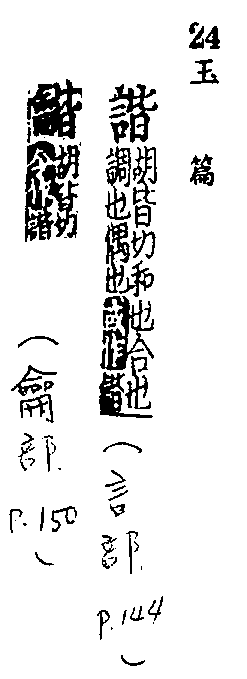 24 玉 篇
諧 胡皆切和也合也
調也偶也或作龤
（言部 P.144）
龤 胡皆切
今作諧
（龠部 P.150）